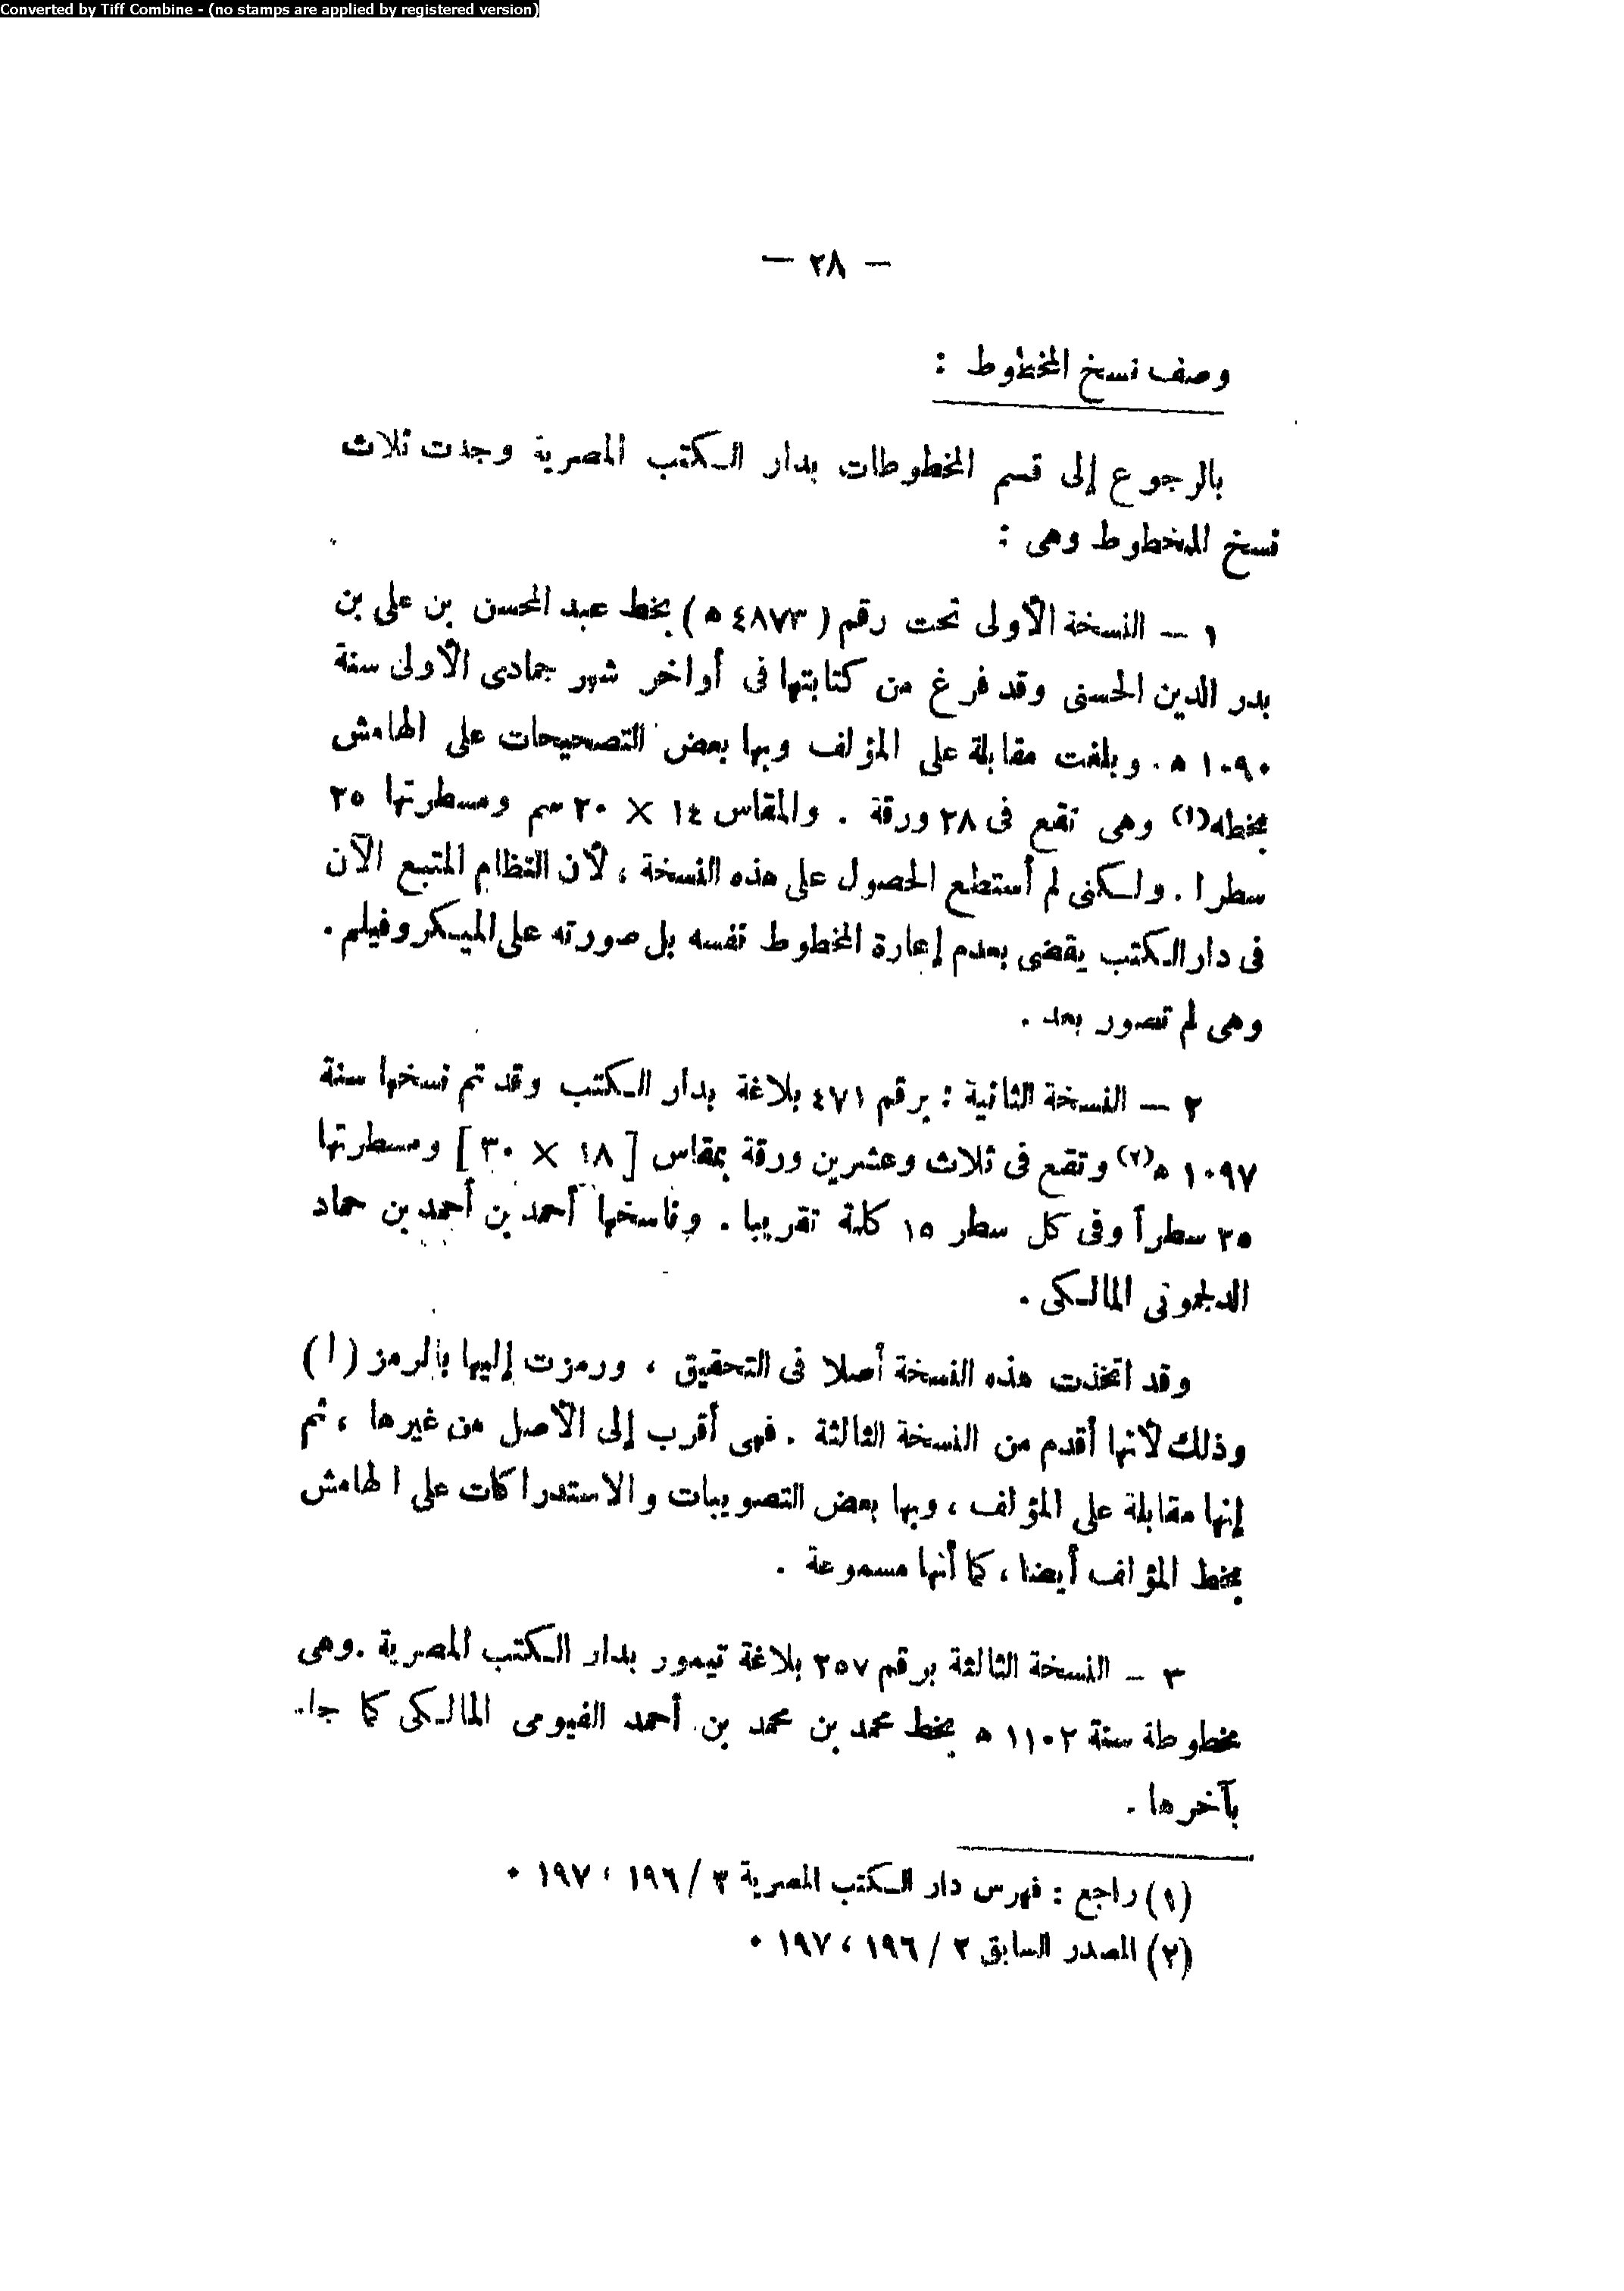 Converted by Tiff Combine - (no stamps are applied by registered version)
— ٢٨ —
وصف نسخ المخطوط :
بالرجوع إلى قسم المخطوطات بدار الكتب المصرية وجدت ثلاث
نسخ للمخطوط وهى :
١ — النسخة الأولى تحت رقم ( ٤٨٧٣ ه ) بخط عبد المحسن بن على بن
بدر الدين الحسنى وقد فرغ من كتابتها فى أواخر شهر جمادى الأولى سنة
١٠٩٠ ه . وبلغت مقابلة على المؤلف وبها بعض التصحيحات على الهامش
بخطه(١) وهى تقع فى ٢٨ ورقة . والمقاس ١٤ × ٢٠ سم ومسطرتها ٢٥
سطرا . ولكنى لم أستطع الحصول على هذه النسخة ، لأن النظام المتبع الآن
فى دار الكتب يقضى بعدم إعارة المخطوط نفسه بل صورته على الميكروفيلم .
وهى لم تصور بعد .
٢ — النسخة الثانية : برقم ٤٧١ بلاغة بدار الكتب وقد تم نسخها سنة
١٠٩٧ ه(٢) وتقع فى ثلاث وعشرين ورقة بمقاس [ ١٨ × ٣٠ ] ومسطرتها
٢٥ سطراً وفى كل سطر ١٥ كلمة تقريبا . وناسخها أحمد بن أحمد بن حماد
الدلجونى المالكى .
وقد اتخذت هذه النسخة أصلا فى التحقيق ، ورمزت إليها بالرمز ( ا )
وذلك لأنها أقدم من النسخة الثالثة . فهى أقرب إلى الأصل من غيرها ، ثم
إنها مقابلة على المؤلف ، وبها بعض التصويبات والاستدراكات على الهامش
بخط المؤلف أيضا ، كما أنها مسموعة .
٣ — النسخة الثالثة برقم ٢٥٧ بلاغة تيمور بدار الكتب المصرية . وهى
مخطوطة سنة ١١٠٢ ه بخط محمد بن محمد بن أحمد الفيومى المالكى كما جاء
بآخرها .
(١) راجع : فهرس دار الكتب المصرية ٣ / ١٩٦ ، ١٩٧ .
(٢) المصدر السابق ٢ / ١٩٦ ، ١٩٧ .